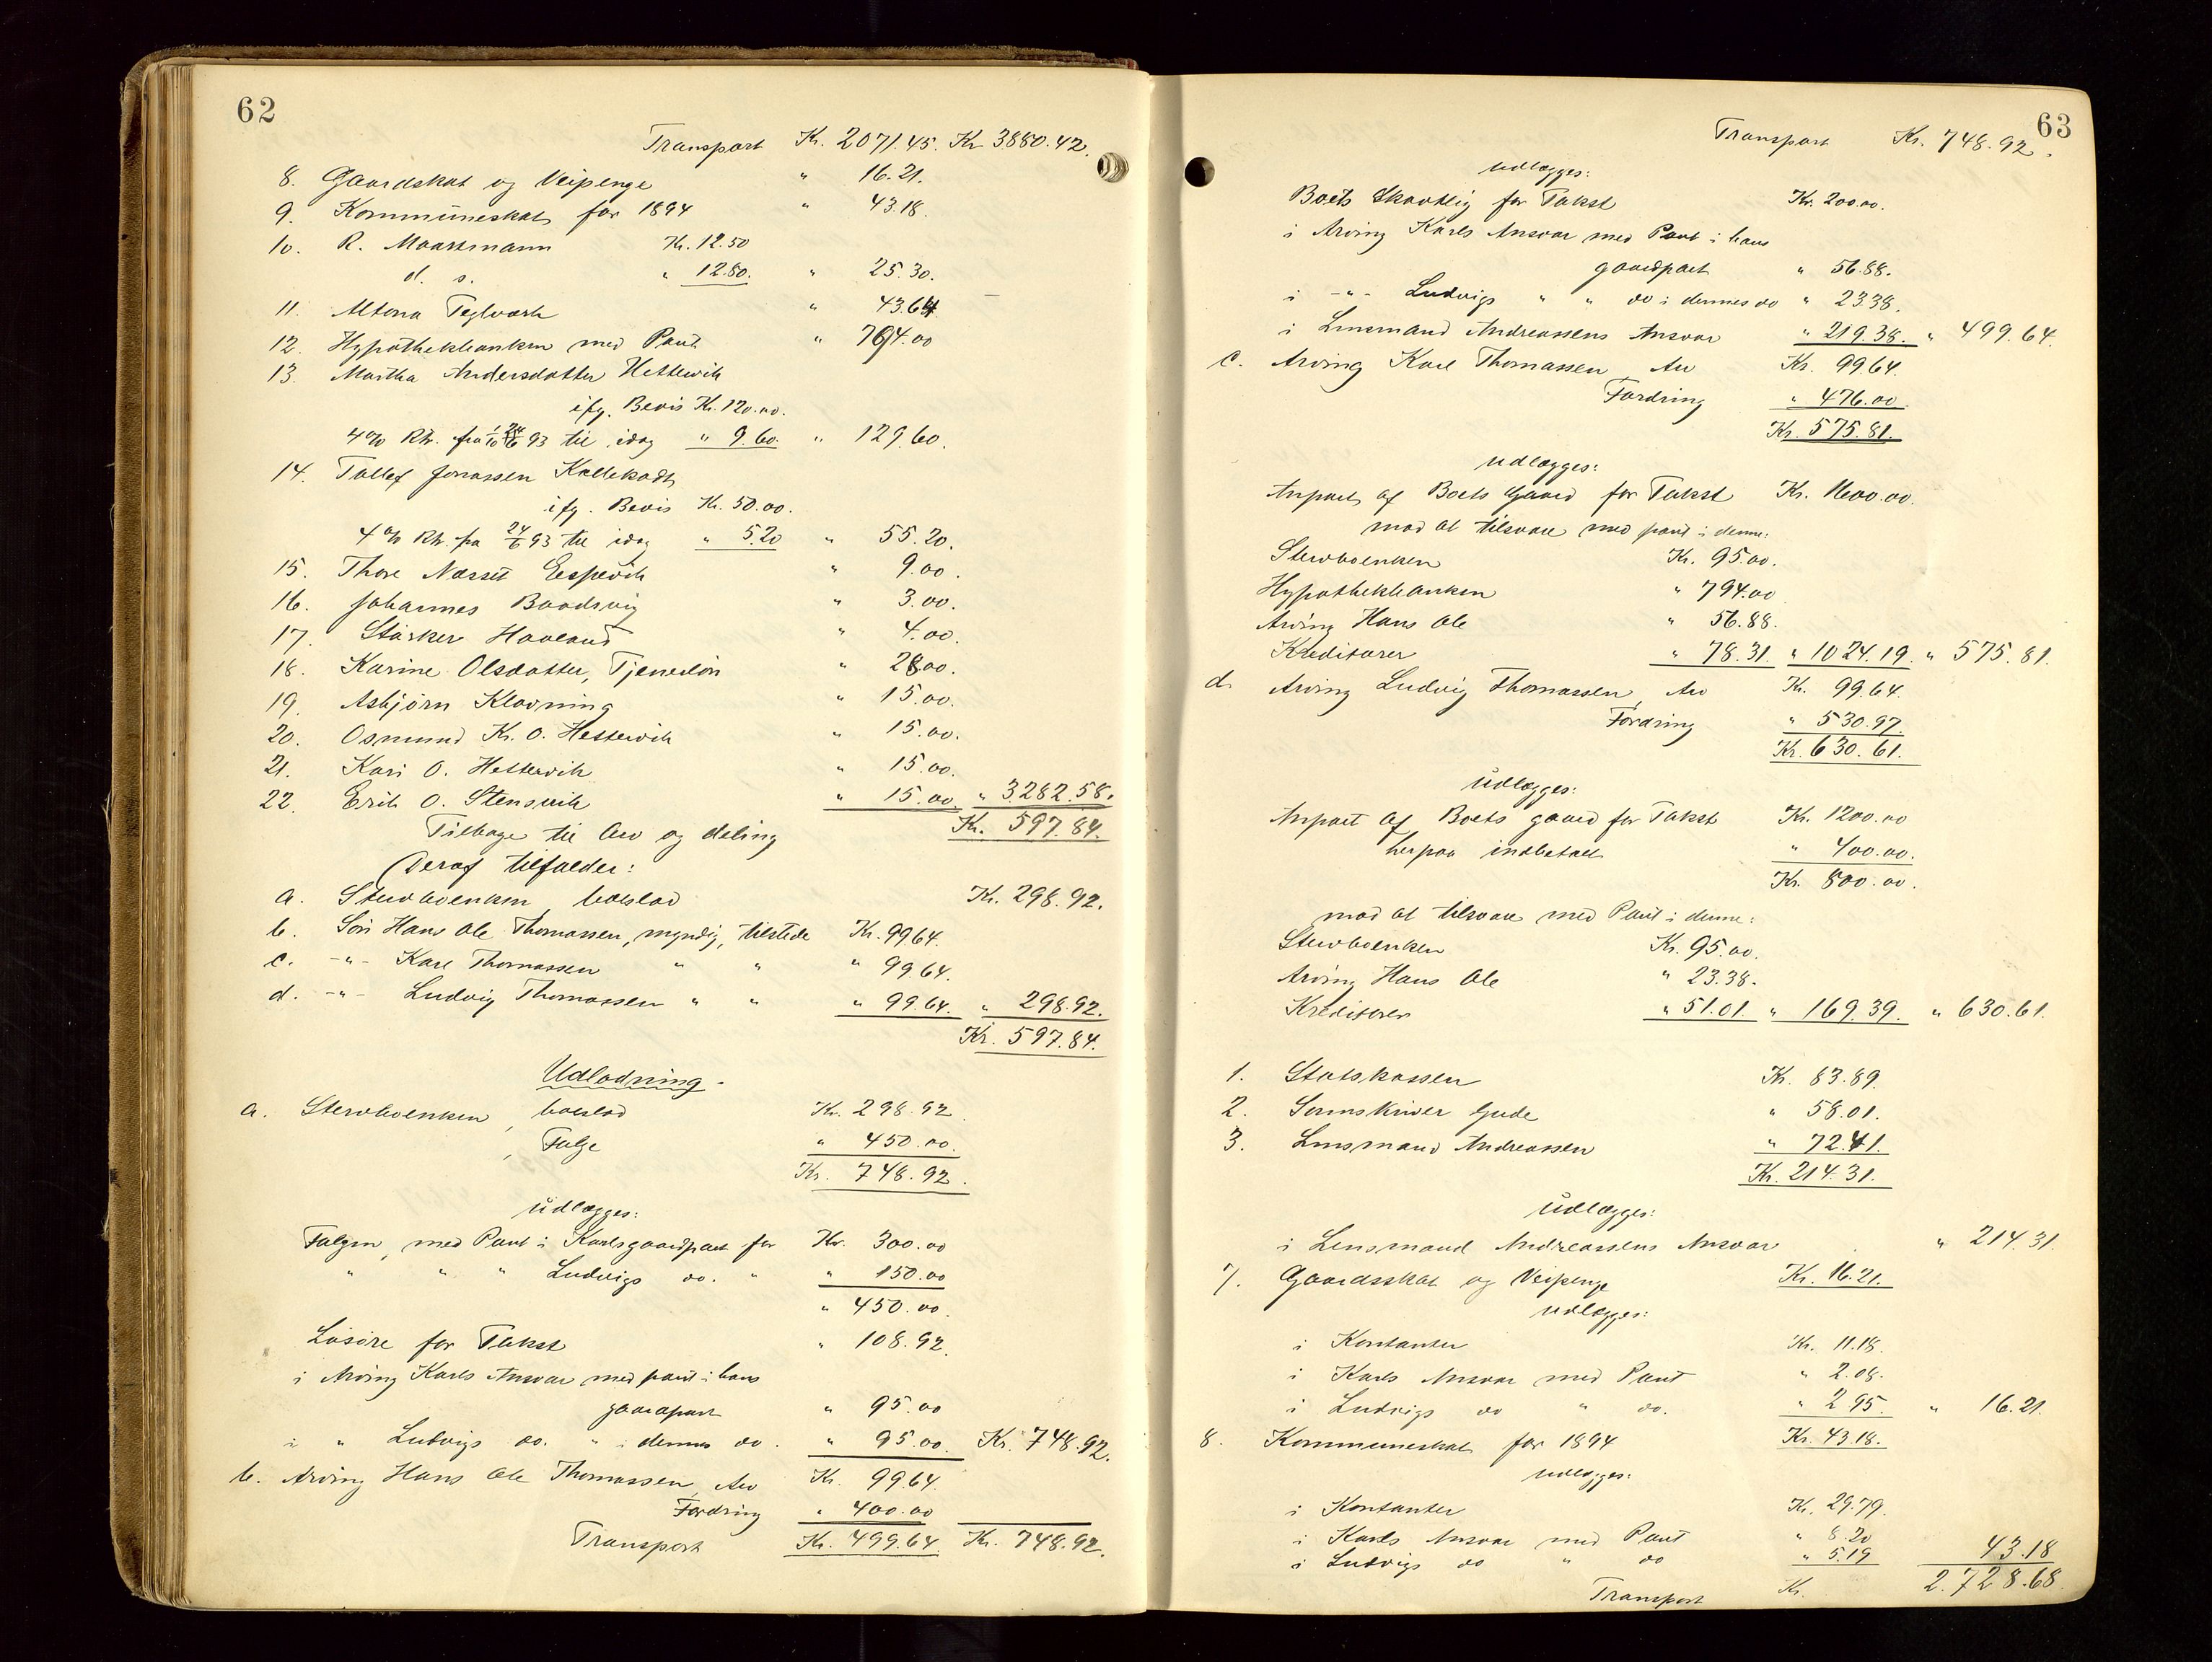 62
Transport Kr. 2071.45. Kr 3880.42.
8. Gaardskat og Veipenge " 16.21.
9. Kommuneskat for 1894 " 43.18.
10. R. Maarsmann Kr. 12.50
d. s. " 12.80. " 25.30.
11. Altona Teglværk " 43.64
12. Hypothekbanken med Pant " 794.00
13. Martha Andersdatter Hettervik
ifg. Bevis Kr. 120.00.
4% Rtr. fra 93 til idag " 9.60. " 129.60.
14. Tollef Jonassen
ifg. Bevis Kr. 50.00.
4% Rtr. fra 24/6 93 til idag " 5.20 " 55.20.
15. Thore Næsset Espevik " 9.00.
16. Johannes Baadsvig " 3.00.
17. Stärker Haaland " 4.00.
18. Karine Olsdatter, Tjenerløn " 28.00.
19. Asbjørn Klovning " 15.00.
20. Osmund Kr. O. Hettervik " 15.00.
21. Kari O. Hettervik " 15.00.
22. Erik O. Stensvik " 15.00. " 3282.58.
Tilbage til Arv og deling Kr. 597.84.
Deraf tilfalder:
a. Stervboenken boeslod Kr. 298.92.
b. Søn Hans Ole Thomassen, myndig, tilstede Kr. 99.64.
c. -"- Karl Thomassen " " " 99.64.
d. -"- Ludvig Thomassen " " " 99.64. " 298.92.
Kr. 597.84.
Udlodning.
a. Stervboenken, boeslod Kr. 298.92.
, Følge " 450.00.
Kr. 748.92.
udlægges:
Følgen, med Pant i Karlsgaardpart for Kr. 300.00
" " " Ludvigs do. " " 150.00
" 450.00.
Løsøre for Takst " 108.92.
i Arving Karls Ansvar med pant i hans
gaardpart " 95.00
i " Ludvigs do. " i dennes do. " 95.00. Kr. 748.92.
b. Arving Hans Ole Thomassen, Arv Kr. 99.64.
Fordring " 400.00
Transport Kr. 499.64. Kr. 748.92.
63
Transport Kr. 748.92.
udlægges:
Boets Skovteig for Takst Kr. 200.00.
i Arving Karls Ansvar med Pant i hans
gaardpart " 56.88.
i -"- Ludvigs " " do i dennes do " 23.38.
i Lensmand Andreassens Ansvar " 219.38. " 499.64.
c. Arving Karl Thomassen, Arv Kr. 99.64.
Fordring " 476.00.
Kr. 575.81.
udlægges:
Anpart af Boets Gaard for Takst Kr. 1600.00.
mod at tilsvare med pant i denne:
Stervboenken Kr. 95.00.
Hypothekbanken " 794.00
Arving Hans Ole " 56.88.
Kreditorer " 78.31. " 1024.19. " 575.81.
d. Arving Ludvig Thomassen, Arv Kr. 99.64.
Fordring " 530.97.
Kr. 630.61.
udlægges:
Anpart af Boets gaard for Takst Kr. 1200.00
herpaa indbetalt " 400.00.
Kr. 800.00.
mod at tilsvare med Pant i denne:
Stervboenken Kr. 95.00.
Arving Hans Ole " 23.38.
Kreditorer " 51.01. " 169.39. " 630.61.
1. Statskassen Kr. 83.89.
2. Sorenskriver Gude " 58.01.
3. Lensmand Andreassen " 72.41.
Kr. 214.31.
udlægges:
i Lensmand Andreassens Ansvar " 214.31.
7. Gaardsskat og Veipenge Kr. 16.21.
udlægges:
i Kontanter Kr. 11.18.
i Karls Ansvar med Pant " 2.08.
i Ludvigs do " do. " 2.95. " 16.21.
8. Kommuneskat for 1894 Kr. 43.18.
udlægges:
i Kontanter Kr. 29.79.
i Karls Ansvar med Pant " 8.20
i Ludvigs do " do " 5.19 43.18
Transport Kr. 2.728.68.